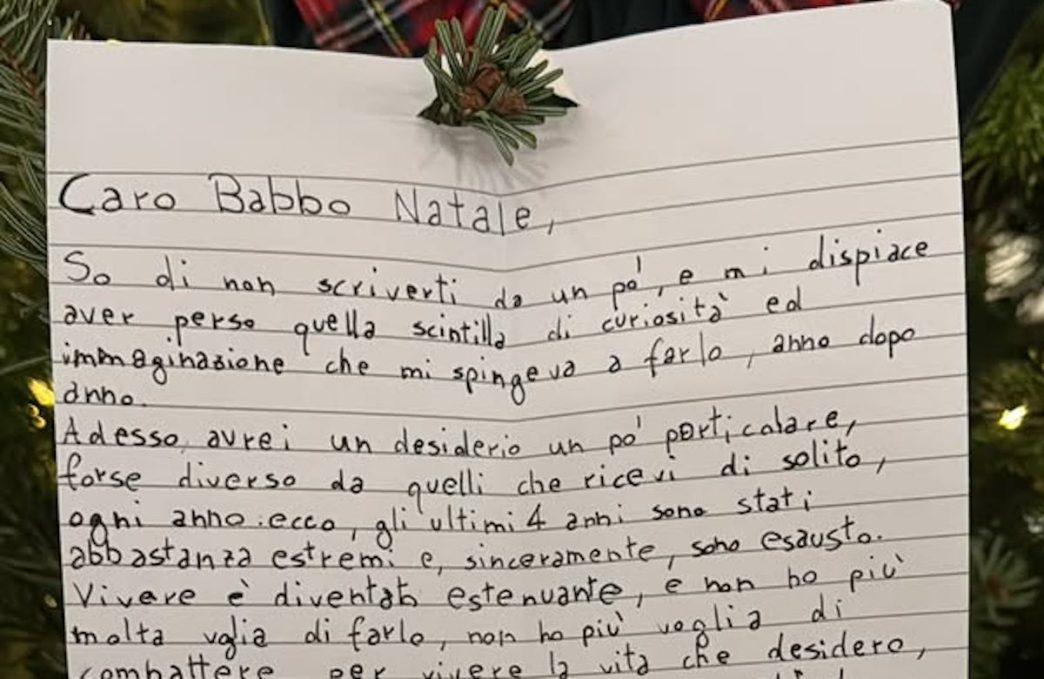 Caro Babbo Natale,
So di non scriverti da un po', e mi dispiace
aver perso quella scintilla di curiosità ed
immaginazione che mi spingeva a farlo, anno dopo
anno.
Adesso avrei un desiderio un po' particalare,
forse diverso da quelli che ricevi di solito,
ogni anno: ecco, gli ultimi 4 anni sono stati
abbastanza estremi e, sinceramente, sono esausto.
Vivere è diventato estenuante, e non ho più
molta voglia di farlo, non ho più voglia di
combattere per vivere la vita che desidero,